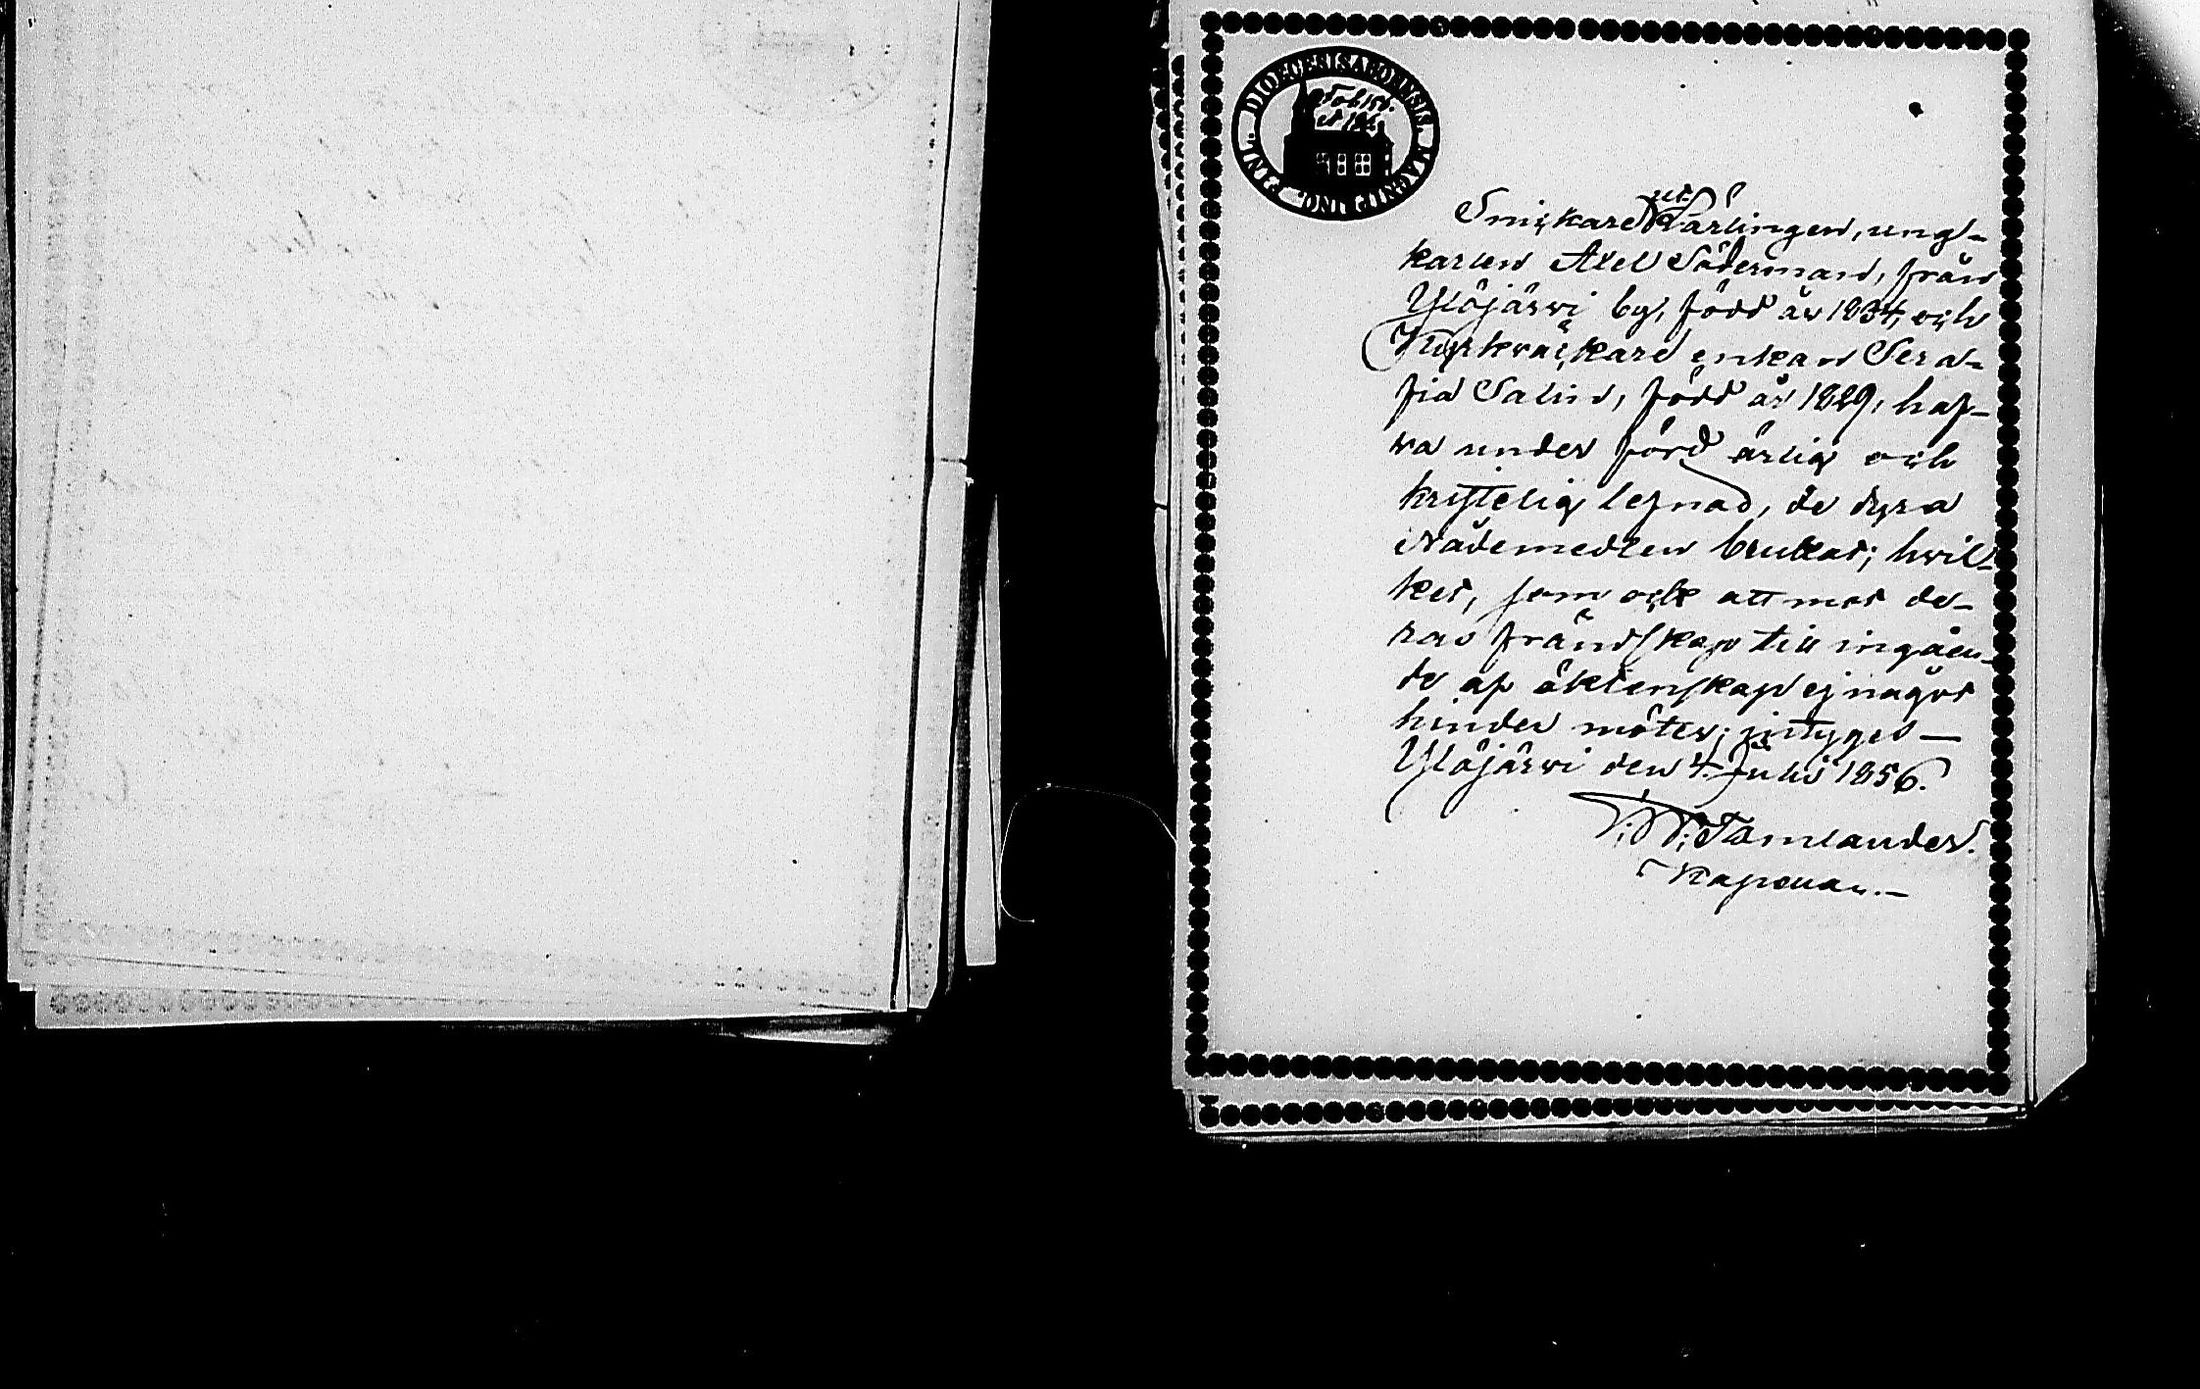 DIOECESIS ABOENSIS. MAGNI PRINC. FINL.
Fol. 156.
Snickare Lärlingen, ung-
karlen Axel Söderman, från
Ylöjärvi by, född år 1834, och
Kyrkväktare enkan Sera-
fia Salin, född år 1829, haf-
va under förd ärlig och
kristelig lefnad, de dyra
Nådemedlen brukat; hvil-
ket, som ock att mot de-
ras frändskap till ingåen-
de af äktenskap ej något
hinder möter, intygas —
Ylöjärvi den 4. Julii 1856.
Tömlander.
Kapellan. —